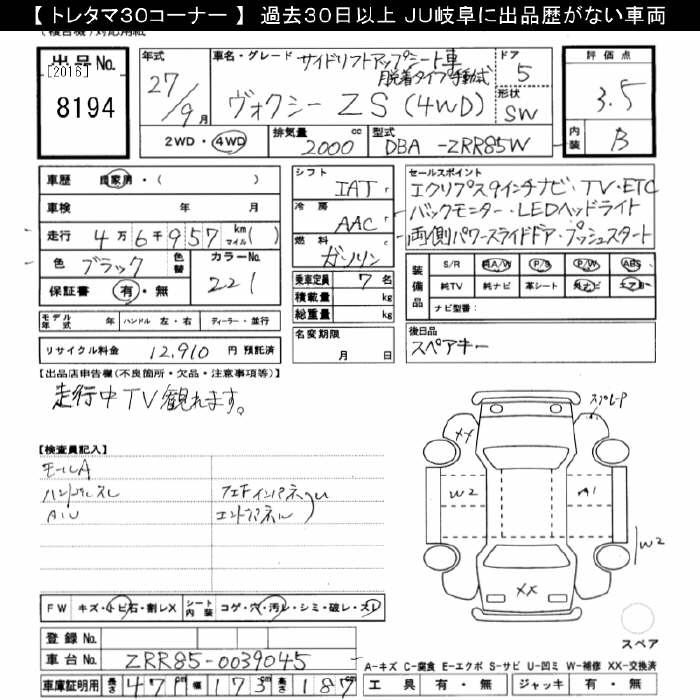 【 トレタマ30コーナー 】 過去30日以上 JU岐阜に出品歴がない車両
出品No.
[2016]
8194
年式
27/9月
車名・グレード サイドリフトアップシート車
脱着タイプ手動式
ヴォクシー ZS (4WD)
ドア
5
形状
SW
評価点
3.5
内装
B
2WD・4WD
排気量 cc
2000
型式
DBA -ZRR85W
車歴 自家用・( )
車検 年 月
走行 4万6千957 kmマイル( )
色 ブラック 色替
カラーNo.
221
保証書 有・無
シフト
IAT
冷房
AAC
燃料
ガソリン
乗車定員 7名
積載量 kg
総重量 kg
名変期限
月 日
セールスポイント
エクリプス9インチナビ・TV・ETC
バックモニター・LEDヘッドライト
両側パワースライドドア・プッシュスタート
装備品
S/R 純A/W P/S P/W ABS
純TV 純ナビ 革シート 社ナビ エアB
ナビ型番:
モデル年式 年 ハンドル 左・右 ディーラー・並行
リサイクル料金 12,910 円 預託済
後日品
スペアキー
【出品店申告欄(不良箇所・欠品・注意事項等)】
走行中TV観れます。
【検査員記入】
モールA
ハンドルスレ
A/U
エンドパネル
スプレーP
XX
W2
A1
W2
XX
FW キズ・トビ石・割レX シート内装 コゲ・穴・汚レ・シミ・破レ・スレ
登録No.
車台No. ZRR85-0039045
スペア
A-キズ C-腐食 E-エクボ S-サビ U-凹ミ W-補修 XX-交換済
車庫証明用 長さ 471cm 幅 173cm 高さ 187cm
工具 有・無 ジャッキ 有・無